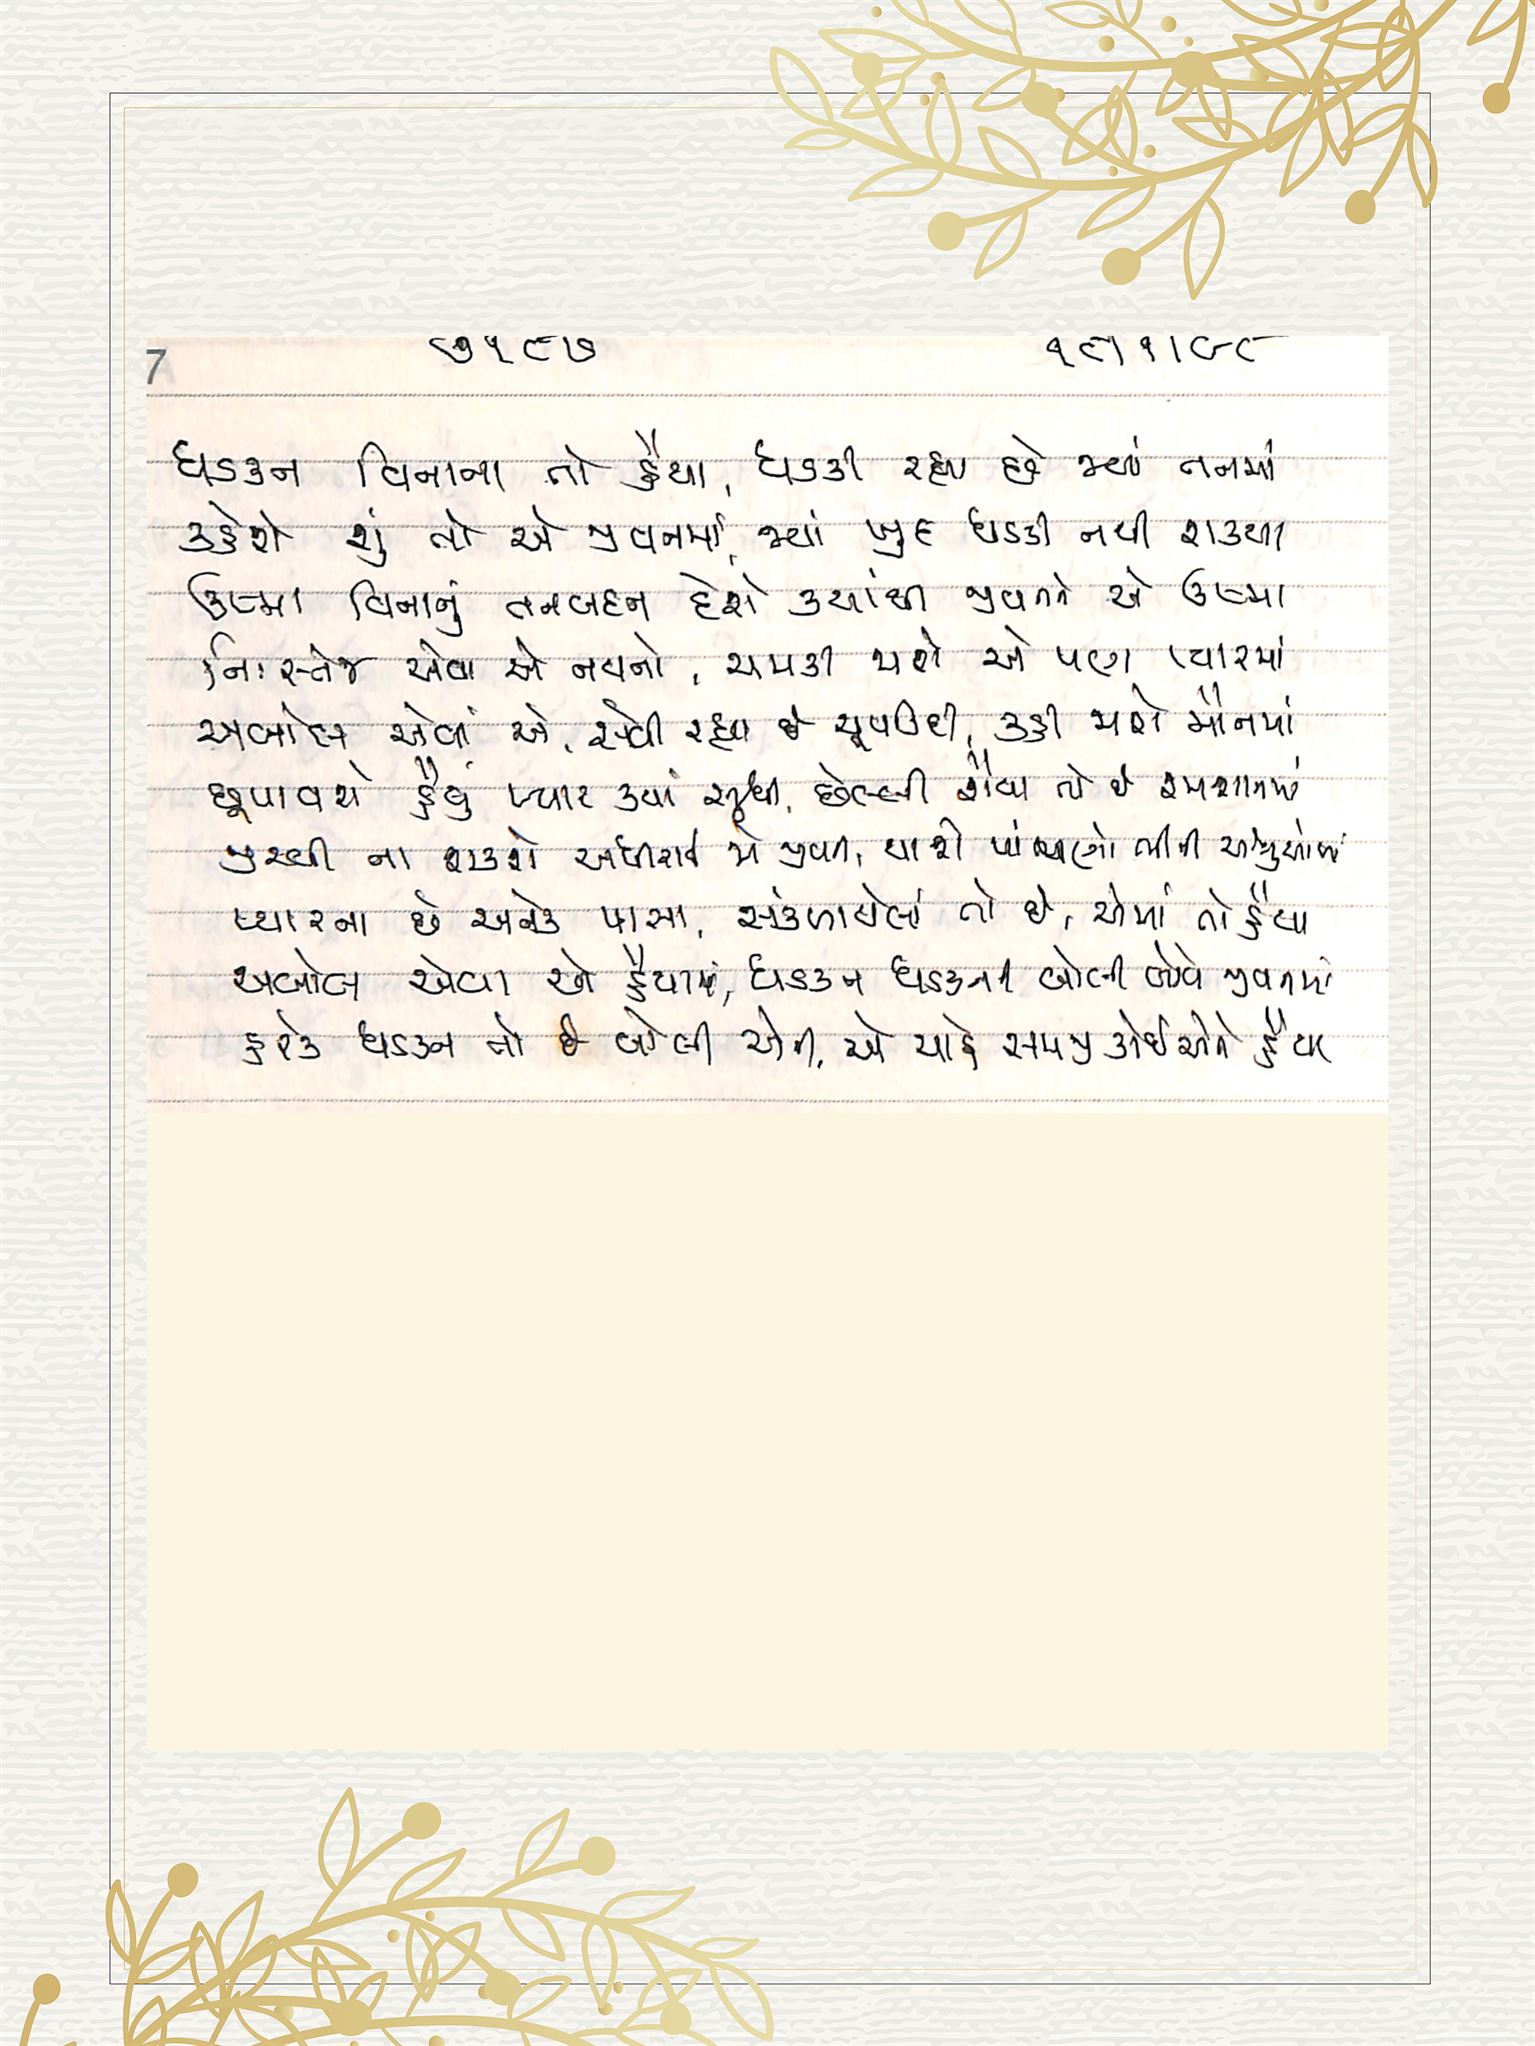 7 ૭૧૯૭ ૧૯|૧|૯૮
ધડકન વિનાના તો હૈયા, ધડકી રહ્યા હશે જ્યાં તનમાં
કહેશે શું તો એ જીવનમાં, જ્યાં ખુદ ધડકી નથી શક્યા
ઉષ્મા વિનાનું તનબદન દેશે ક્યાંથી જીવનને એ ઉષ્મા
નિઃસ્તેજ એવા એ નયનો, ચમકી જાશે એ પણ પ્યારમાં
અબોલ એવાં એ, સેવી રહ્યા છે ચૂપકીદી, કહી જાશે મૌનમાં
છૂપાવશે હૈયું પ્યાર ક્યાં સુધી, છેલ્લી શૈયા તો છે સ્મશાનમાં
જીરવી ના શકશે અધીરાઈ જે જીવન, થાશે પાંપણો ભીની અશ્રુઓમાં
પ્યારના છે અનેક પાસા, સંકળાયેલાં તો છે, એમાં તો હૈયા
અબોલ એવા એ હૈયામાં, ધડકન ધડકનની બોલી બોલે જીવનમાં
હરેક ધડકન તો છે બોલી એની, એ ચાહે સમજી કોઈ એને હૈયા